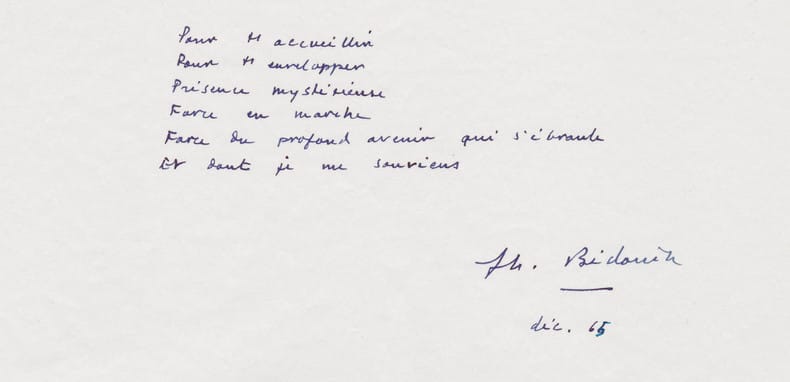 Pour t'accueillir
Pour t'envelopper
Présence mystérieuse
Force en marche
Force du profond avenir qui s'ébranle
Et dont je me souviens
Bédouin
déc. 65